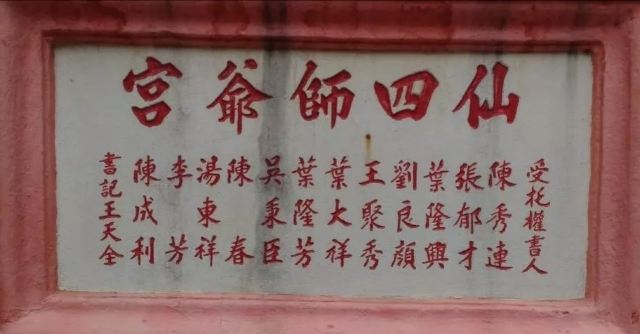 仙四師爺宮
受托權書人
陳秀連
張郁才
葉隆興
劉良顏
王聚秀
葉大祥
葉隆芳
吳秉臣
陳春
湯東祥
李芳
陳成利
書記王天全